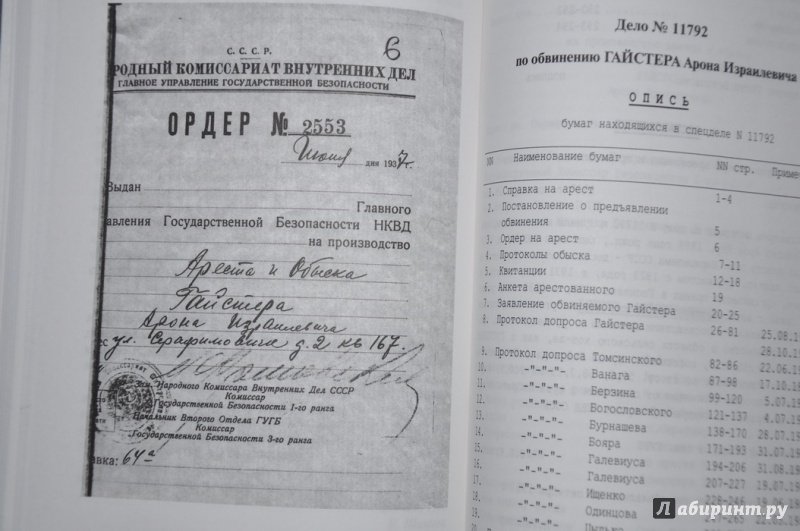 6
С. С. С. Р.
РОДНЫЙ КОМИССАРИАТ ВНУТРЕННИХ ДЕЛ
ГЛАВНОЕ УПРАВЛЕНИЕ ГОСУДАРСТВЕННОЙ БЕЗОПАСНОСТИ
ОРДЕР № 2553
Июня дня 1937г.
Выдан
Главного
авления Государственной Безопасности НКВД
на производство
Ареста и Обыска
Гайстера
Арона Израилевича
ес ул. Серафимовича д. 2 кв 167
Зам. Народного Комиссара Внутренних Дел СССР
Комиссар
Государственной Безопасности 1-го ранга
Начальник Второго Отдела ГУГБ
Комиссар
Государственной Безопасности 3-го ранга
авка: 64а
Дело № 11792
по обвинению ГАЙСТЕРА Арона Израилевича
ОПИСЬ
бумаг находящихся в спецделе N 11792
NN Наименование бумаг NN стр. Приме
1. Справка на арест 1-4
2. Постановление о предъявлении
обвинения 5
3. Ордер на арест 6
4. Протоколы обыска 7-11
5. Квитанции 12-18
6. Анкета арестованного 19
7. Заявление обвиняемого Гайстера 20-25
8. Протокол допроса Гайстера 26-81 25.08.1
28.10.1
9. Протокол допроса Томсинского 82-86 22.06.19
10. -"-"-"- Ванага 87-98 17.10.19
11. -"-"-"- Берзина 99-120 5.07.19
12. -"-"-"- Богословского 121-137 4.07.19
13. -"-"-"- Бурнашева 138-170 28.07.19
14. -"-"-"- Бояра 171-193 31.07.19
15. -"-"-"- Галевиуса 194-206 31.08.19
16. -"-"-"- Галевиуса 207-227 19.07.19
17. -"-"-"- Ищенко 228-246 19.06.19
18. -"-"-"- Одинцова
лабиринт.ру